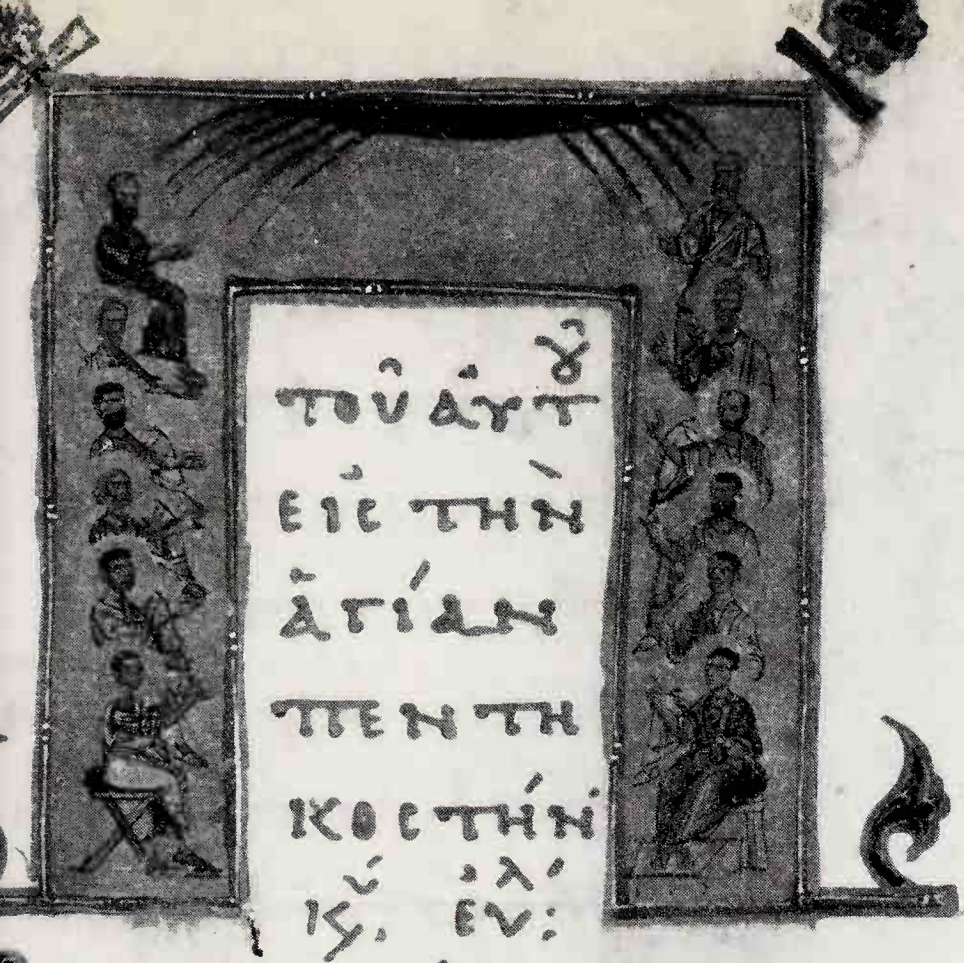 τοῦ ἀυτȣ͂
εἰς τὴν
ἁγίαν
πεντη
κοστήν·
κύ. ἐυλ: